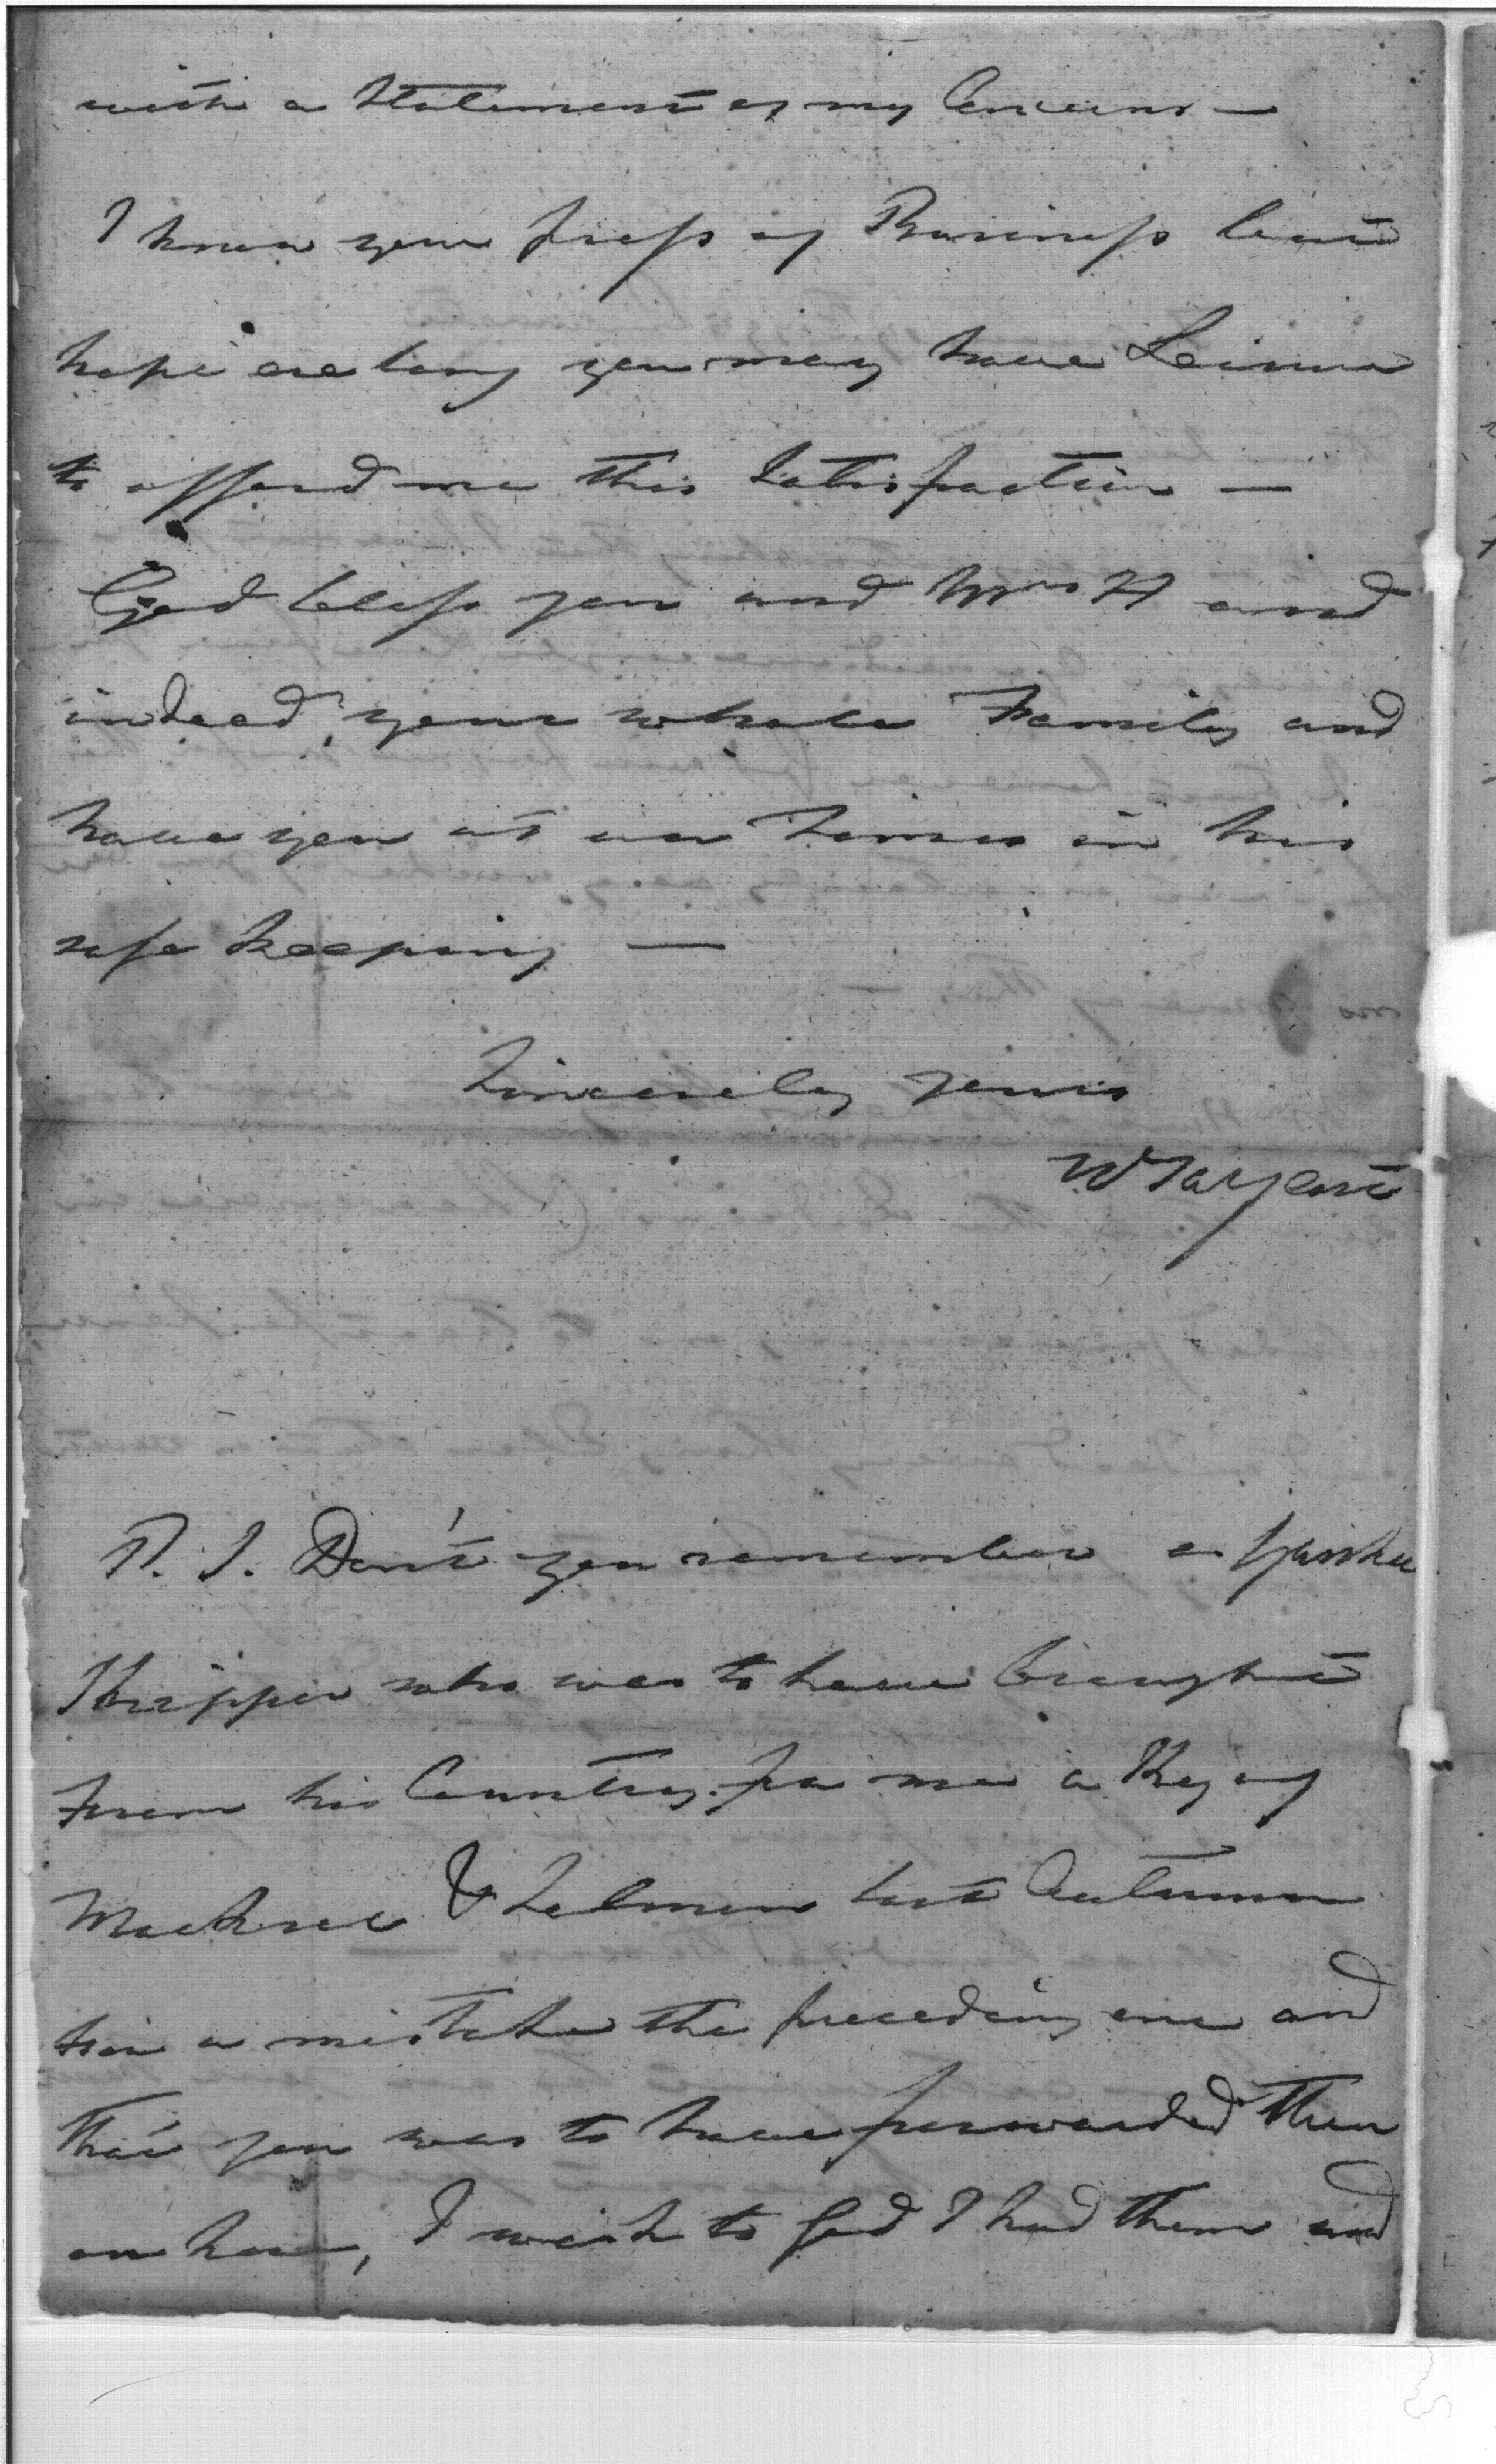 with a Statement of my Concerns —
I know your press of Business but
hope ere long you may have Leisure
to afford me this Satisfaction —
God bless you and Mrs H and
indeed, your whole Family and
have you at all Times in his
safe keeping —
Sincerely yours
W Tar
P. S. Don't you remember a Yankee
Skipper who was to have brought
from his Country for me a Keg of
Mackrel & Salmon last Autumn
a mistake the preceding one and
that you was to have forwarded them
on here, I wish to God I had them and